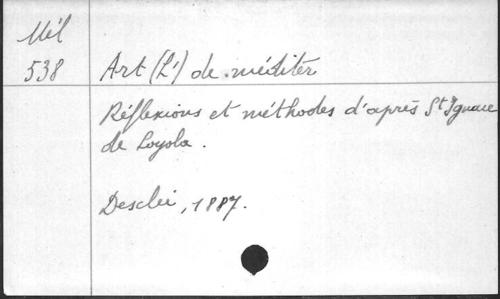 Mél
538
Art (L') de méditer
Réflexions et méthodes d'après St Ignace
de Loyola.
Desclée, 1887.